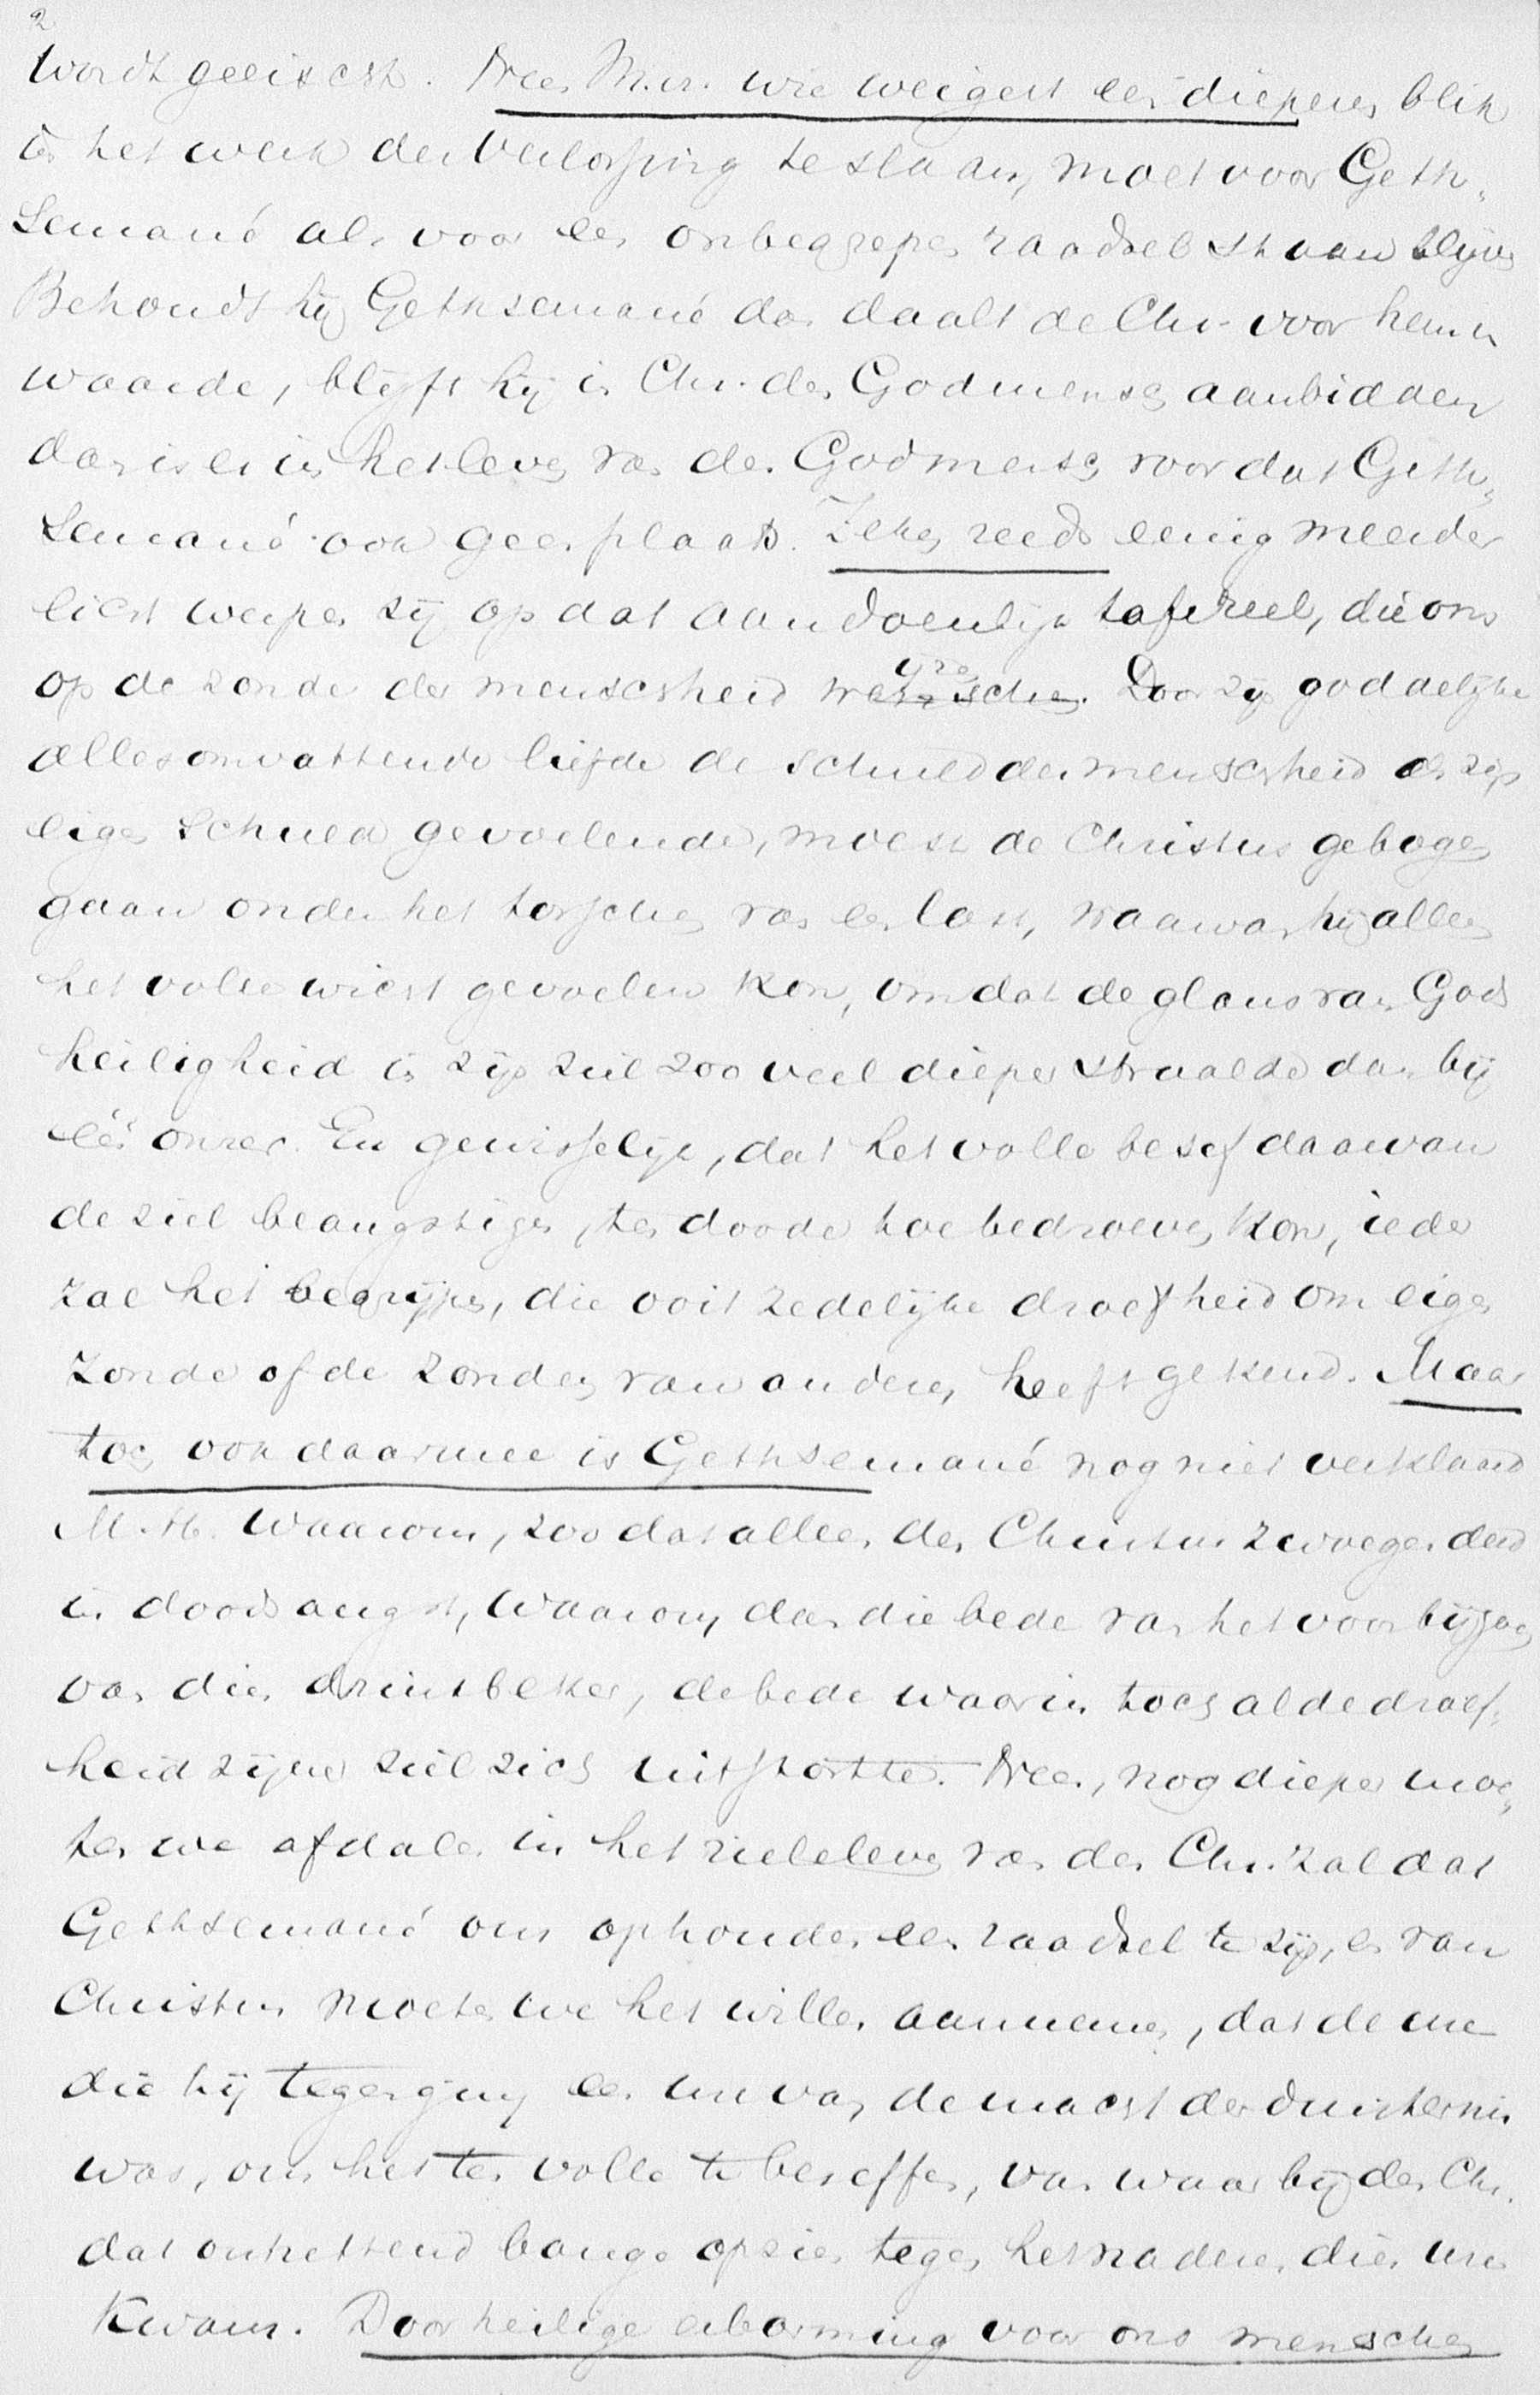 2
wordt geeischt. Neen M.H. wie weigert een dieperen blik
in het werk der verlossing te slaan, moet voor Geth-
semané als voor een onbegrepen raadsel staan blijven
Behoudt hij Gethsemané dan daalt de Chr. voor hem in
waarde, blijft hij in Chr. den Godmensch aanbidden
dan is er in het leven van den Godmensch voor dat Geth-
semané ook geen plaats. Zeker, reeds eenig meerder
licht werpen zij op dat aandoenlijk tafereel, die ons
op de zonde der menschheid wijzen. Door zijn goddelijke
allesomvattende liefde de schuld der menschheid als zijn
eigen schuld gevoelende, moest de Christus gebogen
gaan onder het torschen van een last, waarvan hij alleen
het volle wicht gevoelen kon, omdat de glans van Gods
heiligheid in zijn ziel zoo veel dieper straalde dan bij
één onzer. En gewisselijk, dat het volle besef daarvan
de ziel beangstigen, ten doode toe bedroeven kon, ieder
zal het begrijpen, die ooit zedelijke droefheid om eigen
zonde of de zonden van anderen heeft gekend. Maar
toch ook daarmee is Gethsemané nog niet verklaard
M.H. Waarom, zoo dat alleen den Christus zwoegen deed
in doodsangst, waarom dan die bede van het voorbijgaan
van dien drinkbeker, de bede waarin toch al de droef-
heid zijner ziel zich uitstortte. Neen, nog dieper moe-
ten we afdalen in het zieleleven van den Chr. zal dat
Gethsemané ons ophouden een raadsel te zijn, en van
Christus moeten we het willen aannemen, dat de ure
die hij tegenging een ure van de macht der duisternis
was, om het ten volle te beseffen, van waar bij den Chr.
dat ontzettend bange opzien tegen het naderen dier ure
kwam. Door heilige erbarming voor ons menschen